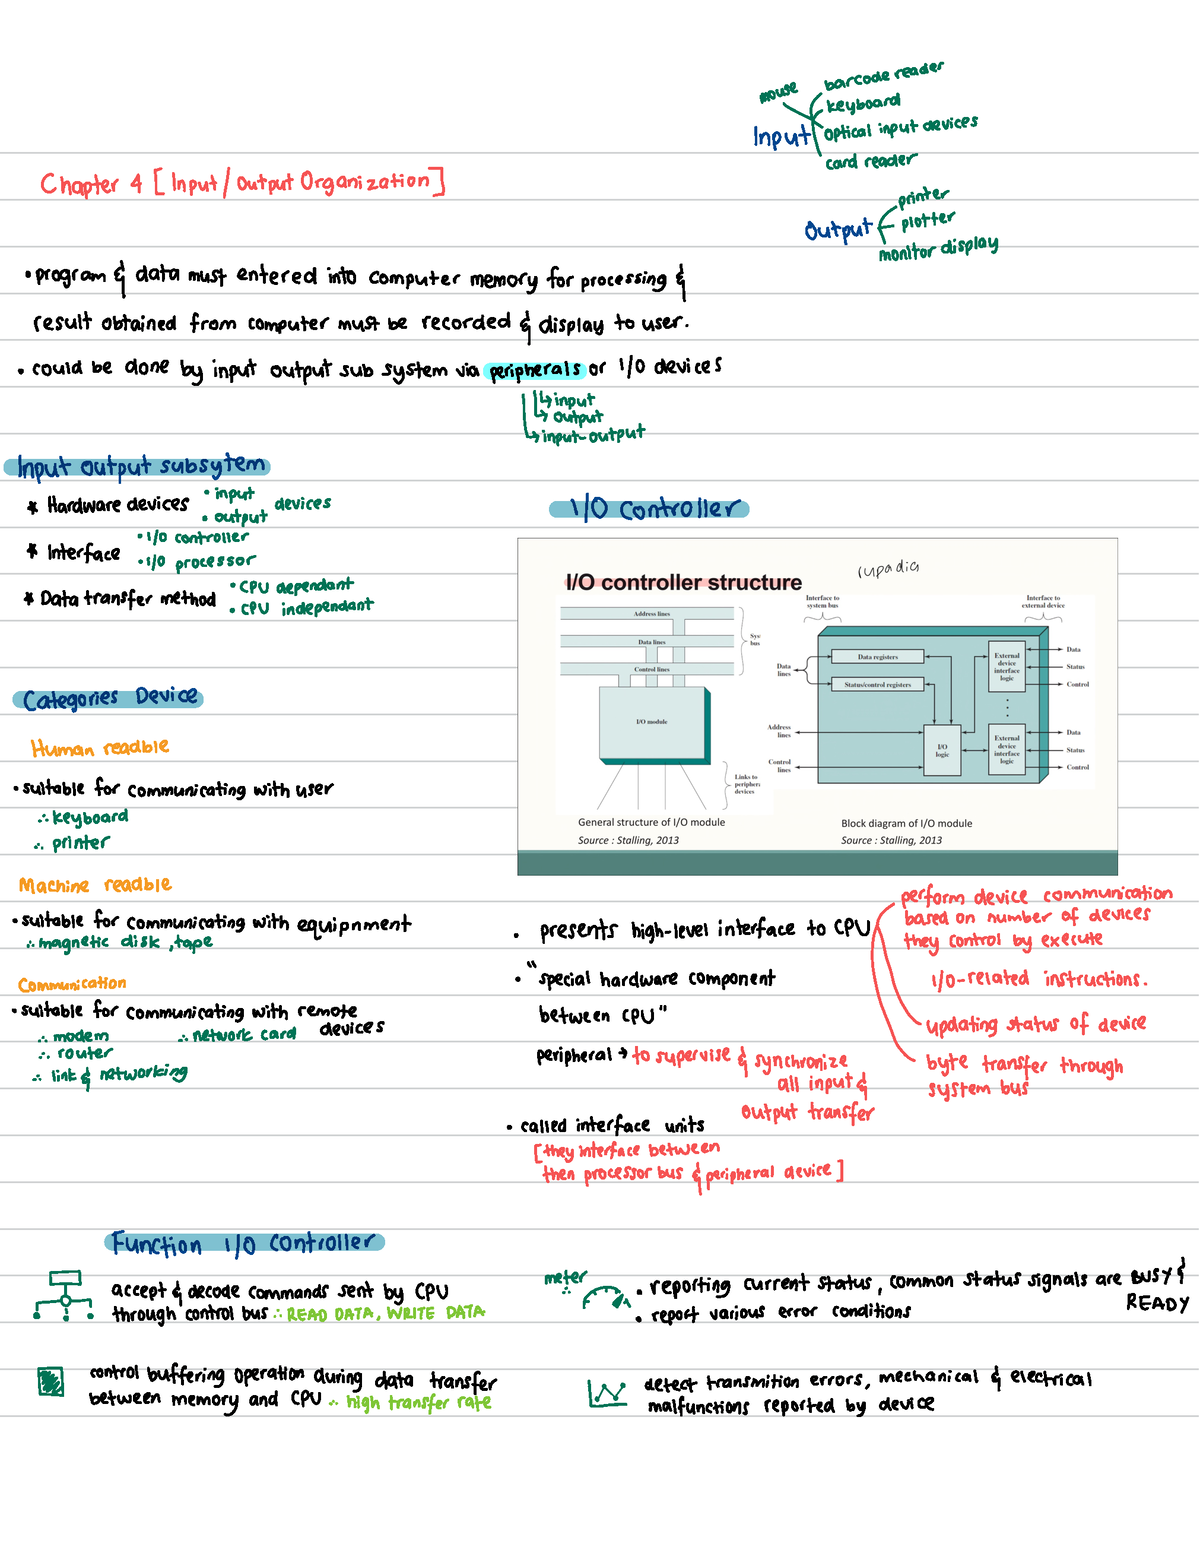 mouse
barcode reader
keyboard
Input
optical input devices
card reader
Chapter 4 [Input/Output Organization]
printer
Output
plotter
monitor display
• program & data must entered into computer memory for processing &
result obtained from computer must be recorded & display to user.
• could be done by input output sub system via peripherals or I/O devices
↳ input
↳ output
↳ input-output
Input output subsytem
* Hardware devices • input devices
• output
* Interface • I/O controller
• I/O processor
* Data transfer method • CPU dependant
• CPU independant
Categories Device
Human readble
• suitable for communicating with user
∴ keyboard
∴ printer
Machine readble
• suitable for communicating with equipnment
∴ magnetic disk, tape
Communication
• suitable for communicating with remote
devices
∴ modem ∴ network card
∴ router
∴ link & networking
I/O Controller
I/O controller structure
rupadia
Address lines
Data lines
Control lines
Sys
bus
I/O module
Links to
periphera
devices
General structure of I/O module
Source : Stalling, 2013
Interface to
system bus
Interface to
external device
Data
lines
Data registers
Status/control registers
External
device
interface
logic
Data
Status
Control
Address
lines
I/O
logic
Control
lines
External
device
interface
logic
Data
Status
Control
Block diagram of I/O module
Source : Stalling, 2013
• presents high-level interface to CPU
perform device communication
based on number of devices
they control by execute
I/O-related instructions.
updating status of device
byte transfer through
system bus
• "special hardware component
between CPU"
peripheral → to supervise & synchronize
all input &
output transfer
• called interface units
[they interface between
then processor bus & peripheral device]
Function I/O Controller
accept & decode commands sent by CPU
through control bus ∴ READ DATA, WRITE DATA
meter
∴
• reporting current status, common status signals are BUSY &
READY
• report various error conditions
control buffering operation during data transfer
between memory and CPU ∴ high transfer rate
detect transmition errors, mechanical & electrical
malfunctions reported by device